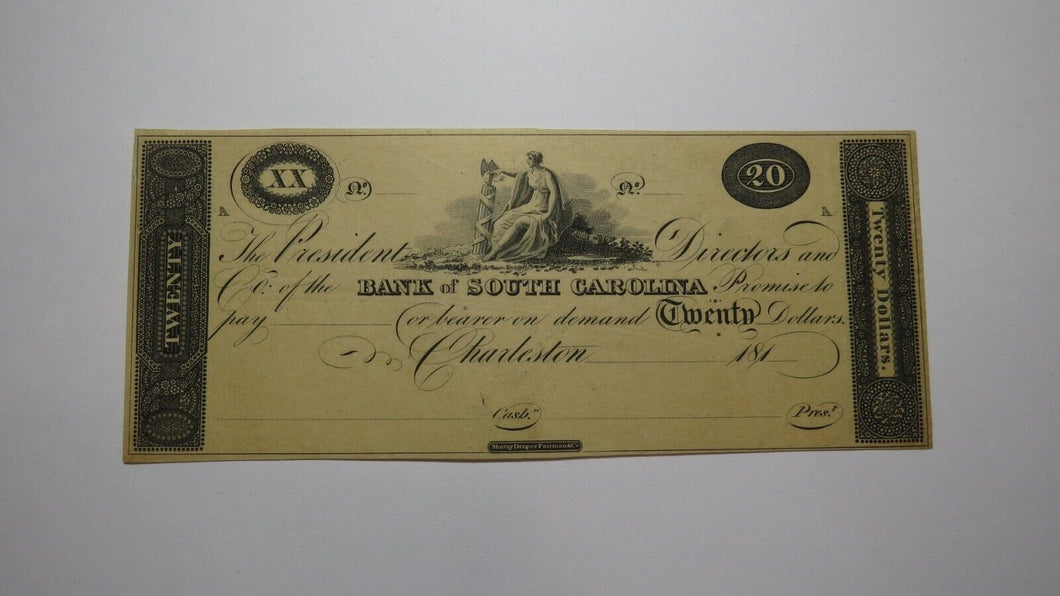 XX Nº. Nº. 20
A A
The President, Directors and
Co: of the BANK of SOUTH CAROLINA Promise to
pay or bearer on demand Twenty Dollars.
Charleston 181
Cash.r Pres.t
Murray Draper Fairman & Co
TWENTY
Twenty Dollars.